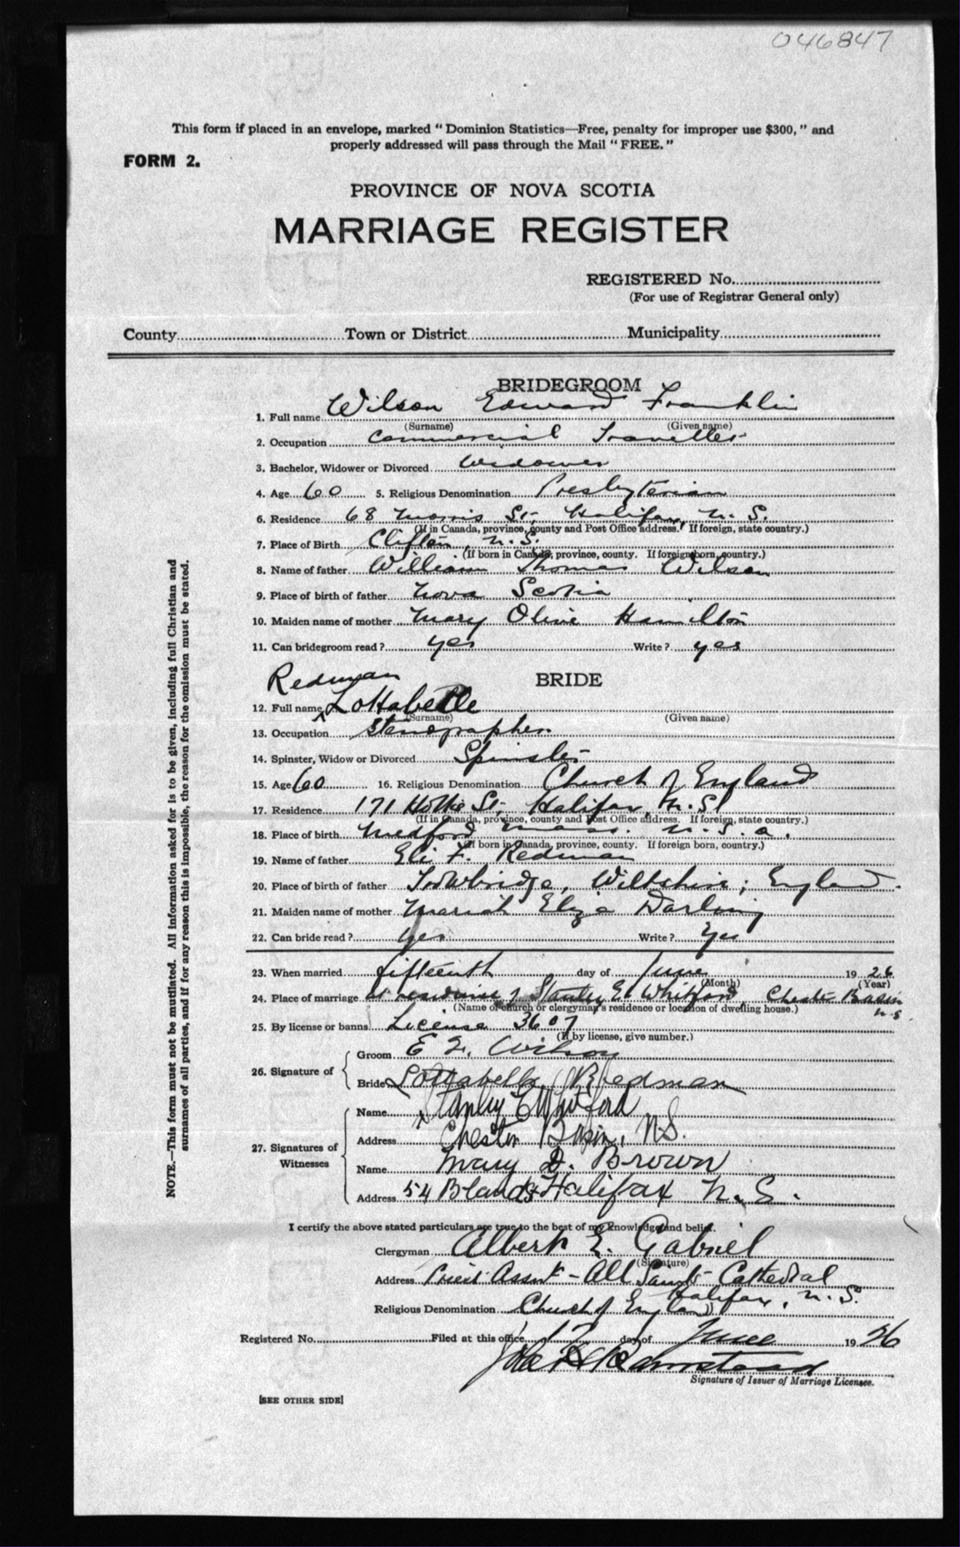 046847
This form if placed in an envelope, marked "Dominion Statistics—Free, penalty for improper use $300," and
properly addressed will pass through the Mail "FREE."
FORM 2.
PROVINCE OF NOVA SCOTIA
MARRIAGE REGISTER
REGISTERED No.
(For use of Registrar General only)
County Town or District Municipality
BRIDEGROOM
1. Full name Wilson Edward Franklin
(Surname) (Given name)
2. Occupation Commercial Traveller
3. Bachelor, Widower or Divorced Widower
4. Age 60 5. Religious Denomination Presbyterian
6. Residence 68 Morris St- Halifax, N. S.
(If in Canada, province, county and Post Office address. If foreign, state country.)
7. Place of Birth Clifton, N. S.
(If born in Canada, province, county. If foreign born, country.)
8. Name of father William Thomas Wilson
9. Place of birth of father Nova Scotia
10. Maiden name of mother Mary Olive Hamilton
11. Can bridegroom read? yes Write? yes
Redman BRIDE
12. Full name Lottabelle
(Surname) (Given name)
13. Occupation Stenographer
14. Spinster, Widow or Divorced Spinster
15. Age 60 16. Religious Denomination Church of England
17. Residence 171 Hollis St- Halifax N. S.
(If in Canada, province, county and Post Office address. If foreign, state country.)
18. Place of birth Medford Mass. U. S. a.
(If born in Canada, province, county. If foreign born, country.)
19. Name of father Eli F. Redman
20. Place of birth of father Trowbridge, Wiltshire; England.
21. Maiden name of mother Mariah Eliza Darling
22. Can bride read? Yes Write? Yes
23. When married fifteenth day of June 1926
(Month) (Year)
24. Place of marriage at residence of Stanley E. Whitford, Chester Basin
N. S.
(Name of church or clergyman's residence or location of dwelling house.)
25. By license or banns License 3607
(If by license, give number.)
26. Signature of Groom E F. Wilson
Bride Lottabelle Redman
27. Signatures of Witnesses
Name Stanley E Whitford
Address Chester Basin, N.S.
Name Mary D. Brown
Address 54 Bland St Halifax N. S.
I certify the above stated particulars are true to the best of my knowledge and belief.
Clergyman Albert E. Gabriel
(Signature)
Address Priest Assnt - All Saints Cathedral
Halifax, N. S.
Religious Denomination Church of England
Registered No. Filed at this office 17 day of June 1926
Signature of Issuer of Marriage Licenses.
[SEE OTHER SIDE]
NOTE.—This form must not be mutilated. All information asked for is to be given, including full Christian and
surnames of all parties, and if for any reason this is impossible, the reason for the omission must be stated.